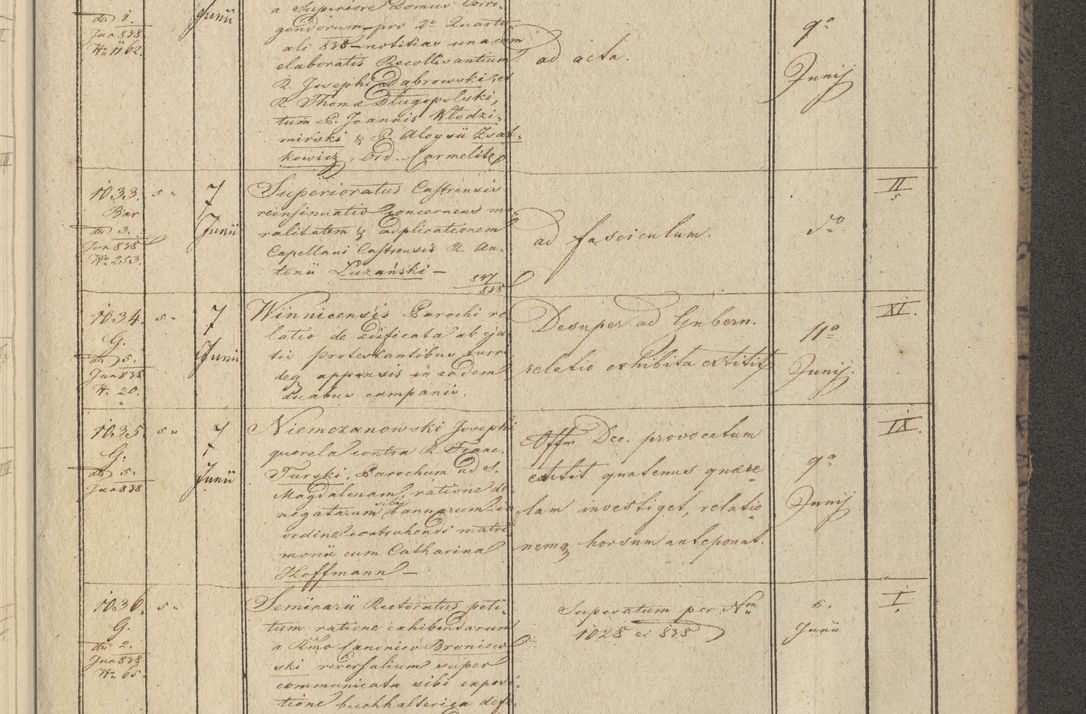 Junii
a Superiore Domus Corri-
gendorum pro 2do Quarta-
ali 838 notitias una cum
elaboratis Recollisantium
R. Josephi Dąbrowski, et
R. Thomæ Długopolski,
tum P. Joannis Włodzi-
mirski & P. Aloysii Zsat-
kowicz, Ord. Carmelit.
dto 1.
Jun 838
Nr. 1162.
ad acta.
9a
Junij
1033.
Bar
dto 3.
Jun 838
Nr. 253.
5
7
Junii
Superioratus Castrensis
reinsinuatio concernens mo-
ralitatem & adplicationem
Capellani Castrensis R. An-
tonii Luzański —
838
ad fasciculum.
5a
II
5
1034.
G.
dto 5.
Jun 838
Nr. 20.
5
7
Junii
Winnicensis Parochi re-
latio de ædificata ab eja-
tis protestantibus turri
deq appensis in eadem
duabus campanis.
Desuper ad Gubern.
relatio exhibita extitit
11a
Junij.
XI.
1035.
G.
dto 5.
Jun 838
5
7
Junii
Niemczanowski Josephi
querela contra R. Franc.
Turyki, Parochum ad S.
Magdalenam, ratione de-
negatarum sibi bannorum in
ordine contrahendi matri-
monii cum Catharina
Hoffmann —
Offm Dce. provocatum
extitit quatenus quære-
lam investiget, relatio
nemq horsum anteponat.
9a
Junij
IX.
1036.
G.
dto 2.
Jun 838
Nr. 65.
5
Seminarii Rectoratus peti-
tum ratione exhibendarum
a Rmo Canonico Broniew-
ski reversalium super
communicata sibi exposi-
tione buchhalterica defe
Superatum per Nrm
1028 ex 838
6.
Junii
I.